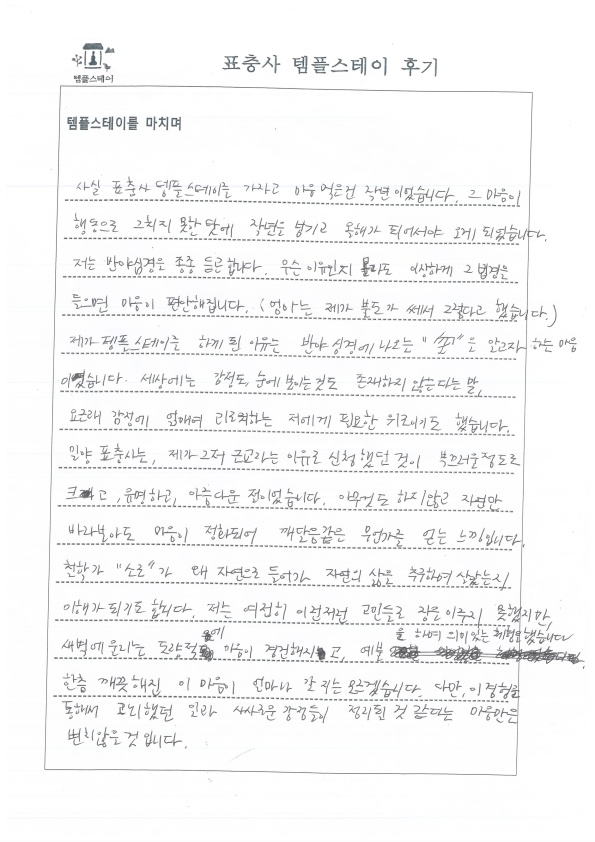 템플스테이
표충사 템플스테이 후기
템플스테이를 마치며
사실 표충사 템플스테이를 가자고 마음 먹은건 작년이었습니다. 그 마음이
행동으로 그치지 못한 탓에 작년을 넘기고 올해가 되어서야 오게 되었습니다.
저는 반야심경을 종종 듣곤합니다. 무슨 이유인지 몰라도 이상하게 그 법경을
들으면 마음이 편안해집니다. (엄마는 제가 불도가 쎄서 그렇다고 했습니다.)
제가 템플스테이를 하게 된 이유는 반야심경에 나오는 "空"을 알고자 하는 마음
이었습니다. 세상에는 감정도, 눈에 보이는것도 존재하지 않는다는 말,
요근래 감정에 얽매여 괴로워하는 저에게 필요한 위로이기도 했습니다.
밀양 표충사는, 제가 그저 근교라는 이유로 신청했던 것이 부끄러울정도로
크고, 유명하고, 아름다운 절이었습니다. 아무것도 하지않고 자연만
바라보아도 마음이 정화되어 깨달음같은 무언가를 얻는 느낌입니다.
철학가 "소로"가 왜 자연으로 들어가 자연의 삶을 추구하며 살았는지
이해가 되기도 합니다. 저는 여전히 이런저런 고민들로 잠을 이루지 못했지만,
새벽에 울리는 도량석에 마음이 경건해지고, 예불을 하며 의미있는 체험을 했습니다
한층 깨끗해진 이 마음이 얼마나 갈 지는 모르겠습니다. 다만, 이 경험을
통해서 고뇌했던 일과 사사로운 감정들이 정리된 것 같다는 마음만은
변치않을 것 입니다.